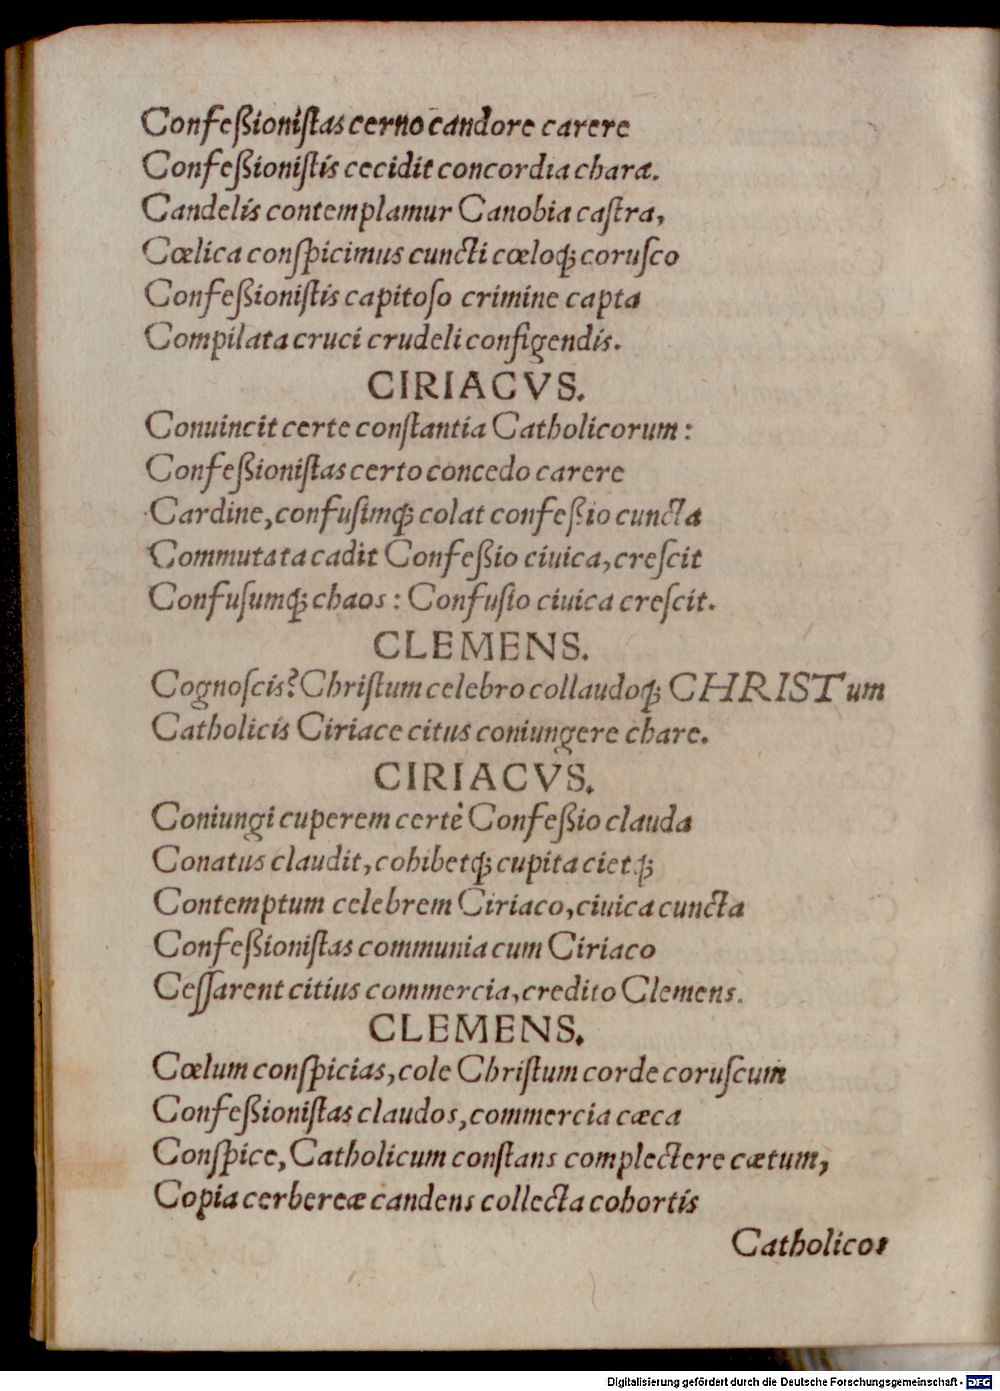 Confeßioniſtas cerno candore carere
Confeßioniſtis cecidit concordia chara.
Candelis contemplamur Canobia caſtra,
Cœlica conſpicimus cuncti cœloq; coruſco
Confeßioniſtis capitoſo crimine capta
Compilata cruci crudeli configendis.
CIRIACVS.
Conuincit certe conſtantia Catholicorum:
Confeßioniſtas certo concedo carere
Cardine, confuſimq; colat confeßio cuncta
Commutata cadit Confeßio ciuica, creſcit
Confuſumq; chaos: Confuſio ciuica creſcit.
CLEMENS.
Cognoſcis? Chriſtum celebro collaudoq; CHRISTum
Catholicis Ciriace citus coniungere chare.
CIRIACVS.
Coniungi cuperem certè Confeßio clauda
Conatus claudit, cohibetq; cupita cietq;
Contemptum celebrem Ciriaco, ciuica cuncta
Confeßioniſtas communia cum Ciriaco
Ceſſarent citius commercia, credito Clemens.
CLEMENS.
Cœlum conſpicias, cole Chriſtum corde coruſcum
Confeßioniſtas claudos, commercia cæca
Conſpice, Catholicum conſtans complectere cætum,
Copia cerbereæ candens collecta cohortis
Catholicos
Digitalisierung gefördert durch die Deutsche Forschungsgemeinschaft - DFG